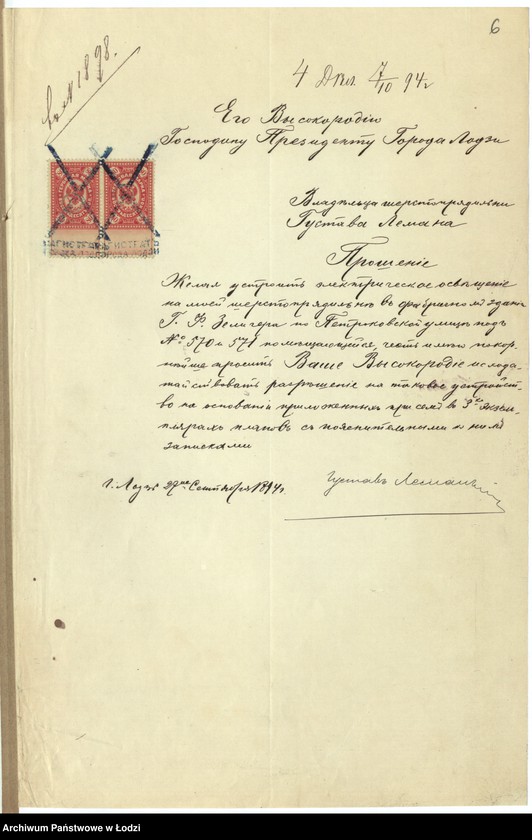 6
1898.
4 7/10 94 г
Его Высокородію
Господину Президенту Города Лодзи
Владѣльца шерстопрядильни
Густава Лемана
Прошеніе
Желая устроить электрическое освѣщеніе
на моей шерстопрядильнѣ въ фабричномъ зданіи
Г. Ф. Зелигера по Петроковской улицѣ подъ
№ 570 и 571 помѣщающейся, честь имѣю покор-
нѣйше просить Ваше Высокородіе исхода-
тайствовать разрѣшеніе на таковое устройст-
во на основаніи приложенныхъ при семъ въ 3хъ экзем-
плярахъ плановъ съ пояснительными къ нимъ
записками
г. Лодзь 29го Сентября 1894 г.
Густавъ Леманъ
Archiwum Państwowe w Łodzi